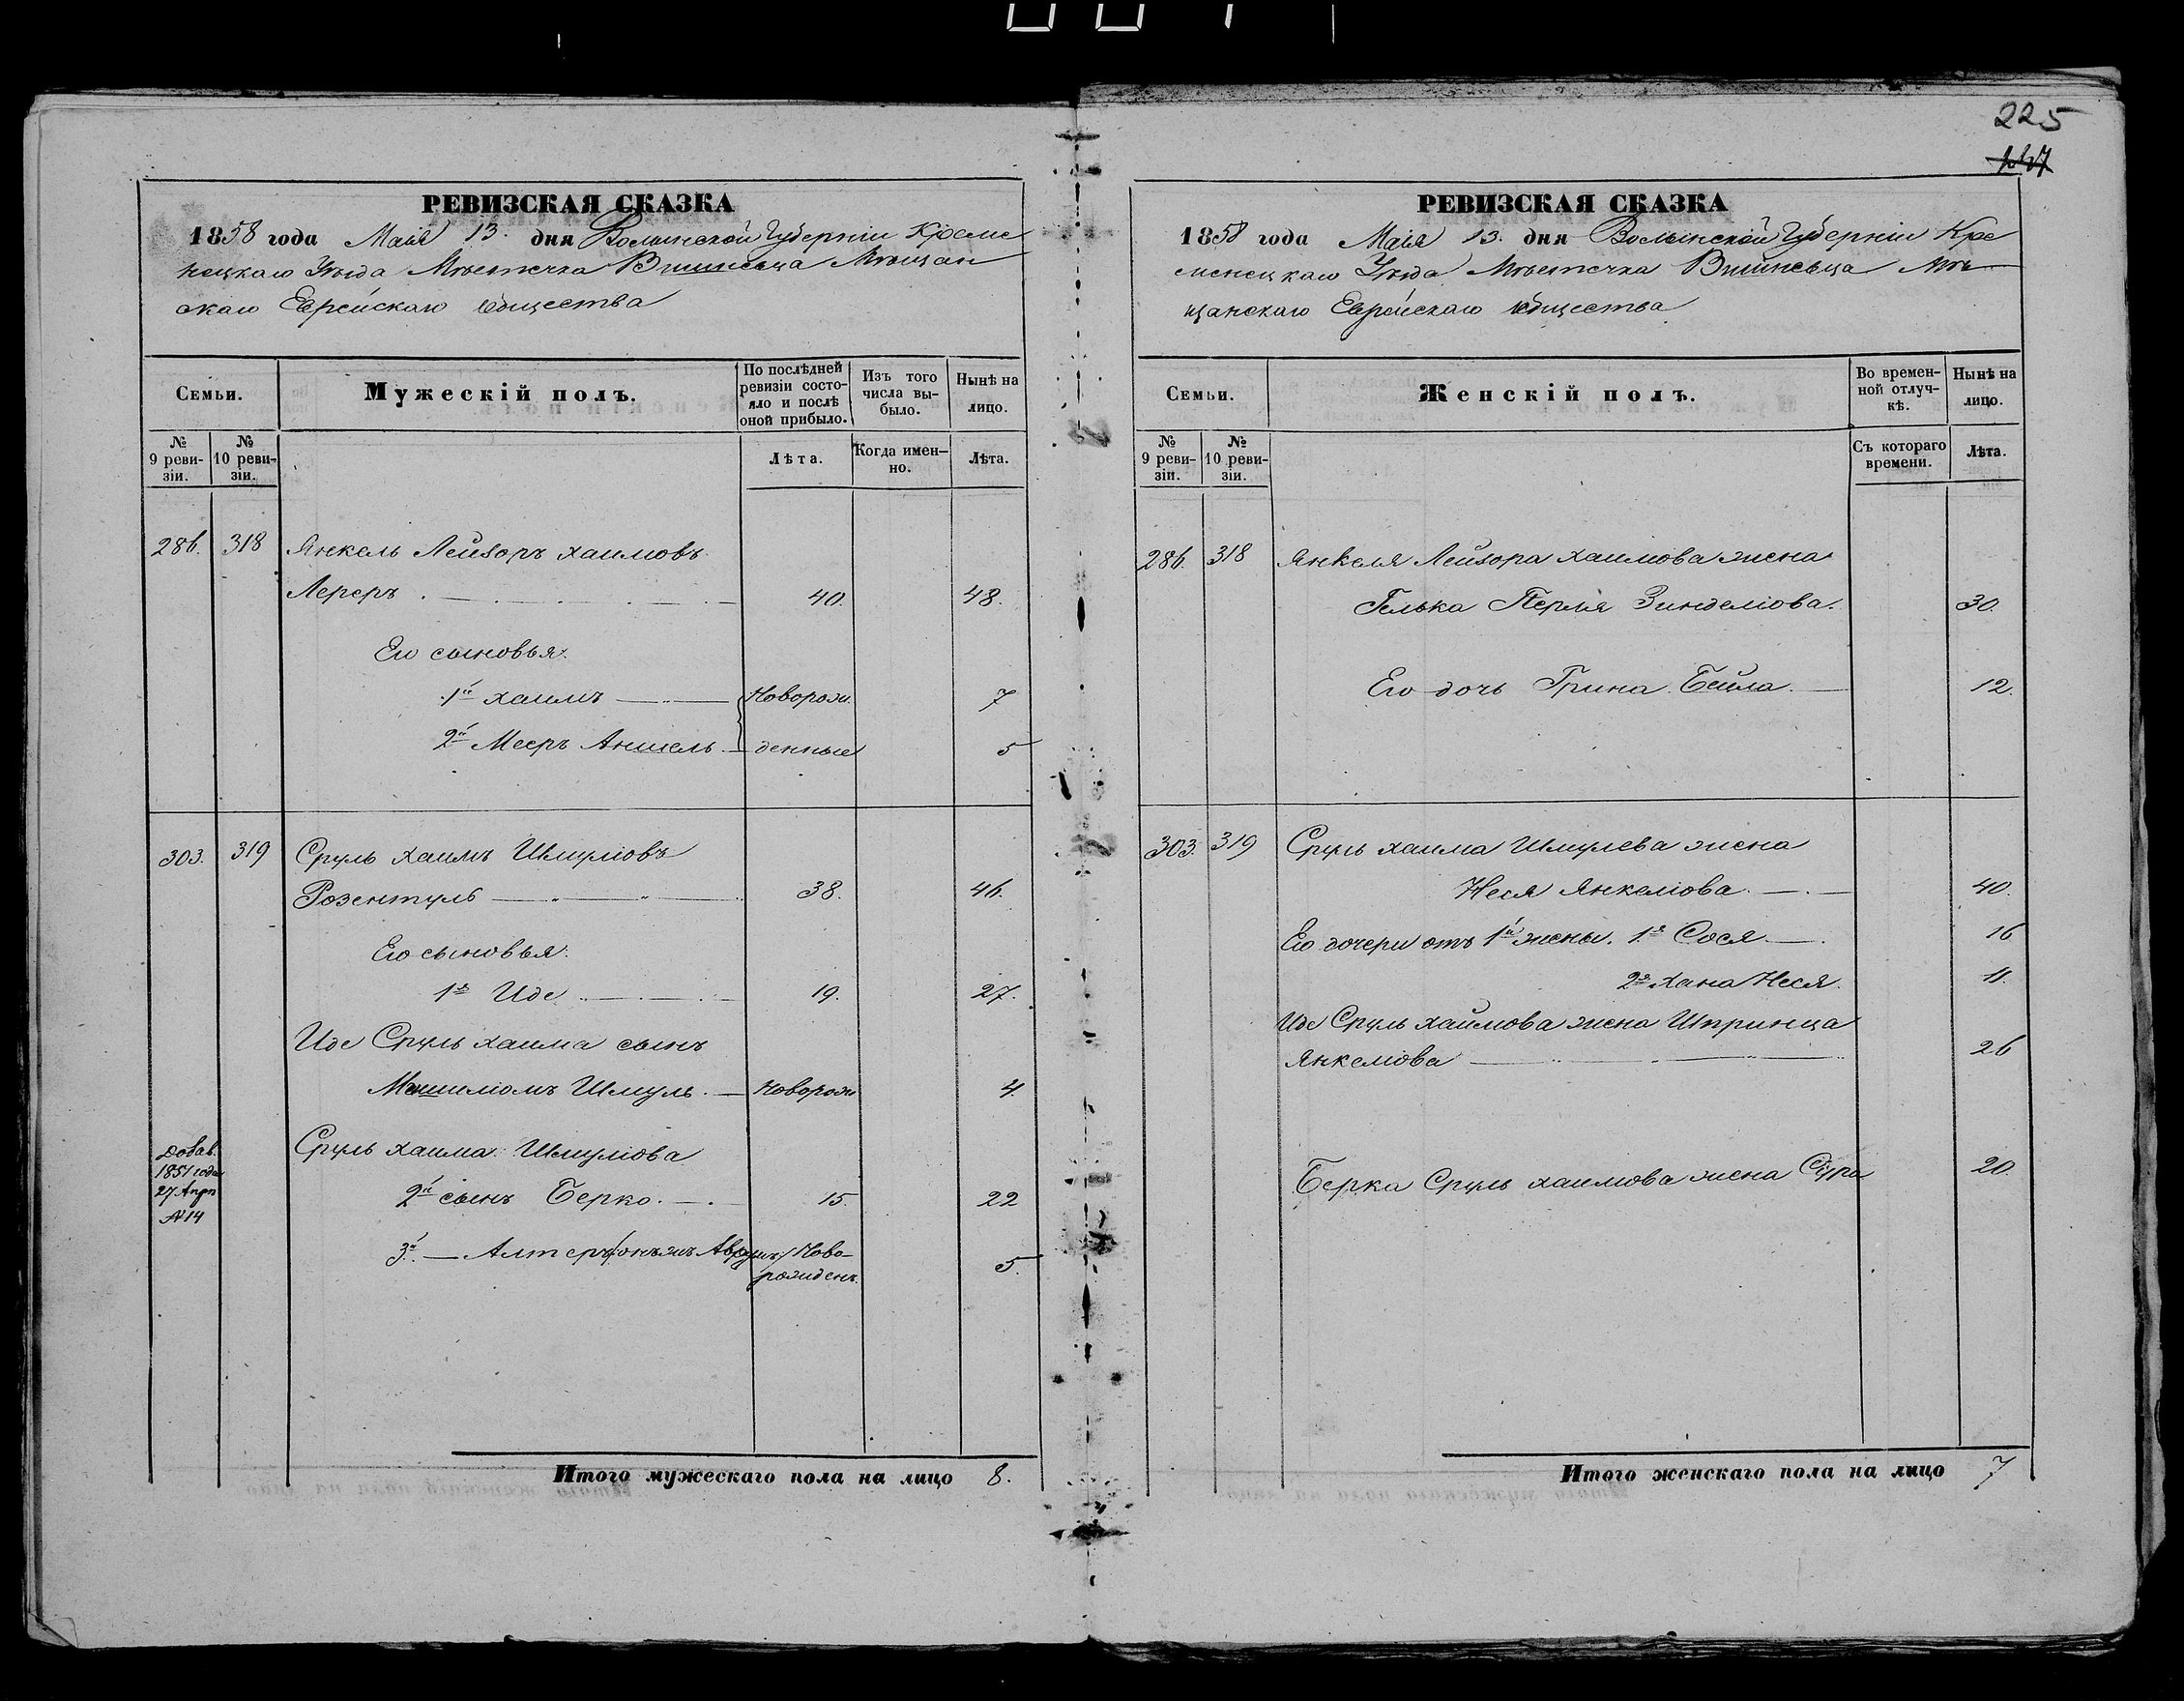 225
РЕВИЗСКАЯ СКАЗКА
1858 года Маія 13. дня Волынской Губерніи Креме
нецкаго Уѣзда Мѣстечка Вишневца Мѣщан
скаго Еврейскаго Общества
Семьи.
Мужескій полъ.
По послѣдней ревизіи состо-
яло и послѣ
оной прибыло.
Изъ того
числа вы-
было.
Нынѣ на
лицо.
№
9 реви-
зіи.
№
10 реви-
зіи.
Лѣта.
Когда имен-
но.
Лѣта.
286. 318 Янкель Лейзоръ Хаимовъ
Лереръ 40. 48.
Его сыновья.
1й ХаимъНоворож 7
2й Мееръ Аншель денные 5
303. 319 Сруль Хаимъ Шмуліовъ
Розентуль 38. 46.
Его сыновья.
1й Иде 19. 27.
Иде Сруль Хаима сынъ
Шмуль Новорож 4.
Добав.
1851 года
27 Апр
№ 14
Сруль Хаима Шмуліова
2й сынъ Берко 15. 22
3й Алтеръ Аврумъ Ново-
рожденъ 5.
Итого мужескаго пола на лицо 8.
РЕВИЗСКАЯ СКАЗКА
1858 года Маія 13. дня Волынской Губерніи Кре
менецкаго Уѣзда Мѣстечка Вишневца Мѣ
щанскаго Еврейскаго Общества
Семьи.
Женскій полъ.
Во времен-
ной отлуч-
кѣ.
Нынѣ на
лицо.
№
9 реви-
зіи.
№
10 реви-
зіи.
Съ котораго
времени.
Лѣта.
286. 318 Янкеля Лейзора Хаимова жена
Гелька Перля Зинделіова. 30.
Его дочь Грина Бейла. 12.
303. 319 Сруль Хаима Шмулева жена
Неся Янкеліова 40.
Его дочери отъ 1й жены. 1я Сося 16
2я Хана Неся. 11.
Иде Сруль Хаимова жена Шпринца
Янкеліова 26
Берка Сруль Хаимова жена Сура 20
Итого женскаго пола на лицо 7